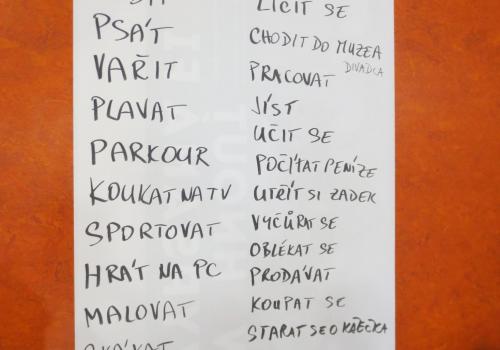 PSÁT
VAŘIT
PLAVAT
PARKOUR
KOUKAT NA TV
SPORTOVAT
HRÁT NA PC
MALOVAT
LÍČIT SE
CHODIT DO MUZEA
DIVADLA
PRACOVAT
JÍST
UČIT SE
POČÍTAT PENÍZE
UTŘÍT SI ZADEK
VYČŮRAT SE
OBLÉKAT SE
PRODÁVAT
KOUPAT SE
STARAT SE O KŘEČKA